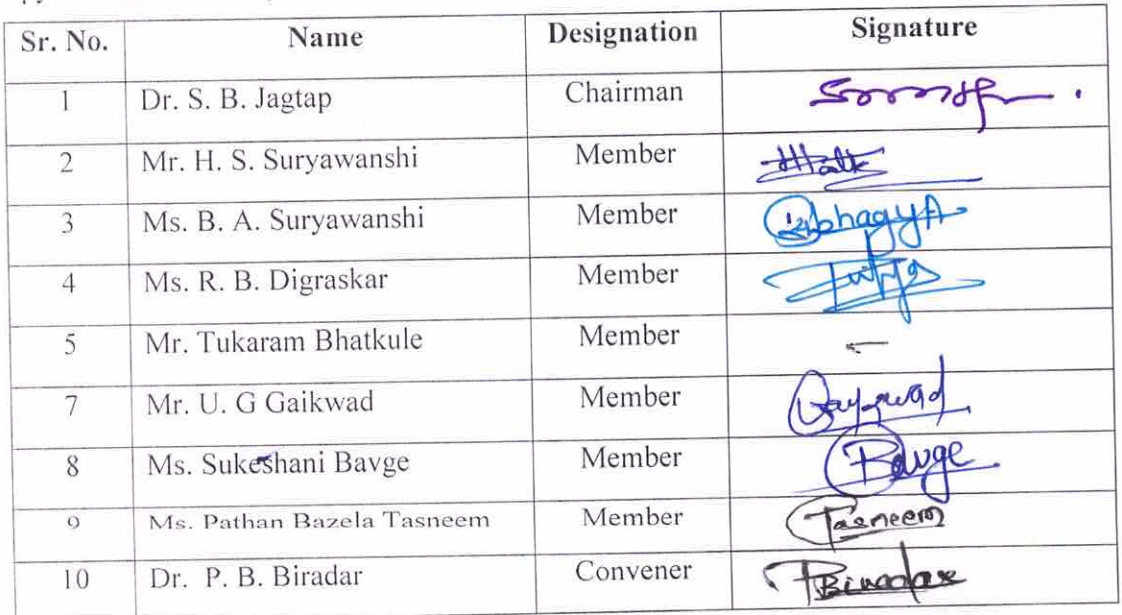 Sr. No. Name Designation Signature
1 Dr. S. B. Jagtap Chairman
2 Mr. H. S. Suryawanshi Member
3 Ms. B. A. Suryawanshi Member Bhagya
4 Ms. R. B. Digraskar Member
5 Mr. Tukaram Bhatkule Member –
7 Mr. U. G Gaikwad Member
8 Ms. Sukeshani Bavge Member Bavge
9 Ms. Pathan Bazela Tasneem Member Tasneem
10 Dr. P. B. Biradar Convener PBiradar